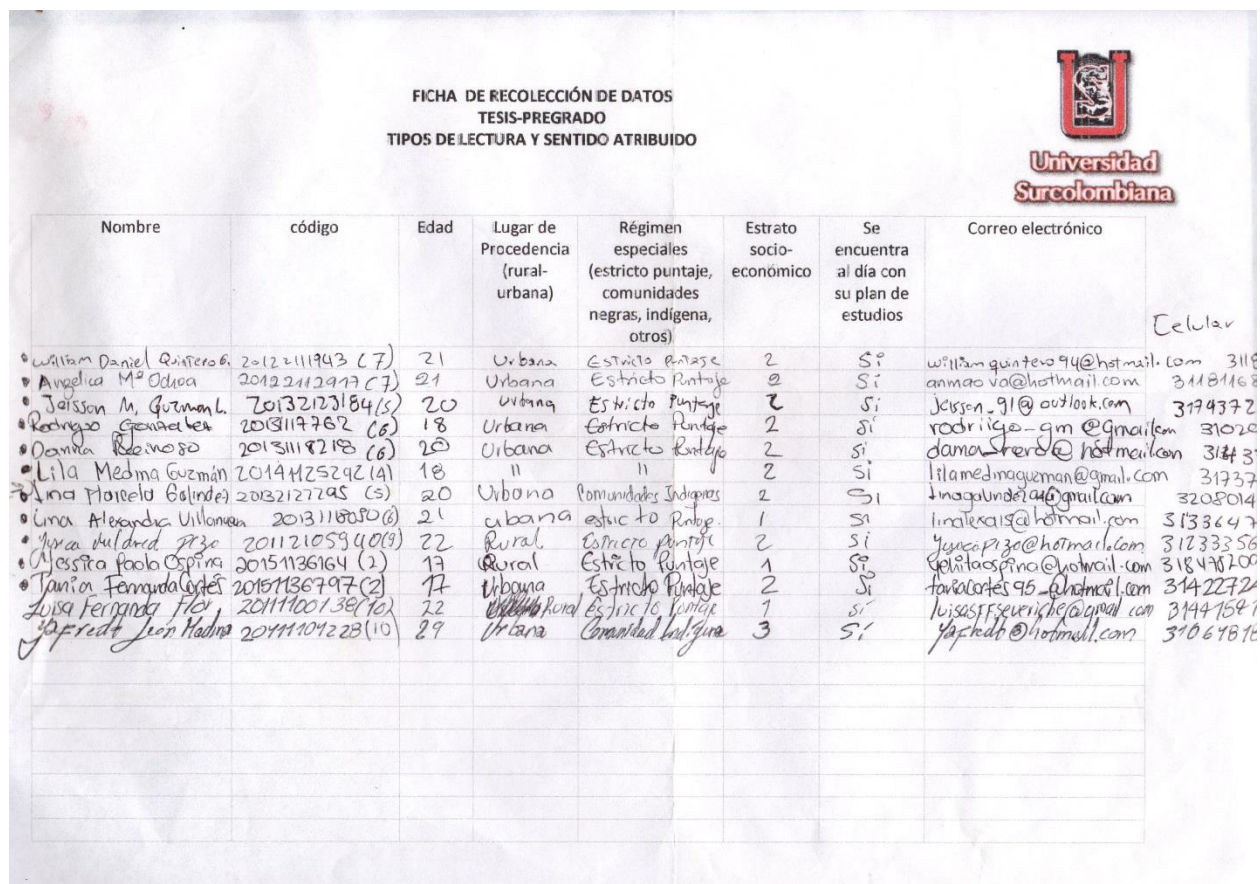 FICHA DE RECOLECCIÓN DE DATOS
TESIS-PREGRADO
TIPOS DE LECTURA Y SENTIDO ATRIBUIDO
Universidad
Surcolombiana
Nombre código Edad Lugar de Procedencia (rural-urbana) Régimen especiales (estricto puntaje, comunidades negras, indígena, otros) Estrato socio-económico Se encuentra al día con su plan de estudios Correo electrónico Celular
William Daniel Quintero G. 20122111943 (7) 21 Urbana Estricto Puntaje 2 Si williamquintero94@hotmail.com 3118
Angelica Mª Ochoa 20122112917 (7) 21 Urbana Estricto Puntaje 2 Si anmaova@hotmail.com 31181168
Jeisson M, Guzman L. 20132123184 (5) 20 Urbana Estricto Puntaje 2 Si Jeisson_91@outlook.com 3174372
Rodrigo Gonzalez 2013117762 (6) 18 Urbana Estricto Puntaje 2 Si rodriigo-gm@Gmail.com 31020
Danna Reinoso 20131118218 (6) 20 Urbana Estricto Puntaje 2 Si 31843
Lila Medina Guzmán 20141125292 (4) 18 " " 2 Si lilamedinaguzman@gmail.com 31737
Lina Marcela Galindez 20132127295 (5) 20 Urbana Comunidades Indigenas 2 Si 3208014
Lina Alexandra Villanueva 20131118050 (6) 21 urbana estricto Puntaje. 1 Si linalexa15@hotmail.com 3133647
Yurca Mildred Pizo 20112105940 (9) 22 Rural. Estricto puntaje 2 Si Yurcapizo@hotmail.com 31233356
Yessica Paola Ospina 20151136164 (2) 17 Rural Estricto Puntaje 1 Si 318478200
Tania Fernanda Cortés 20151136797 (2) 17 Urbana Estricto Puntaje 2 Si taniacortes95_@hotmail.com 3142272
Luisa Fernanda Flor 20111100138 (10) 22 Rural Estricto Puntaje 1 si luisaffseveriche@gmail.com 3144159
Yafredt León Madina 20111101228 (10 29 Urbana Comunidad Indígena 3 Sí Yafredt@hotmail.com 31061818